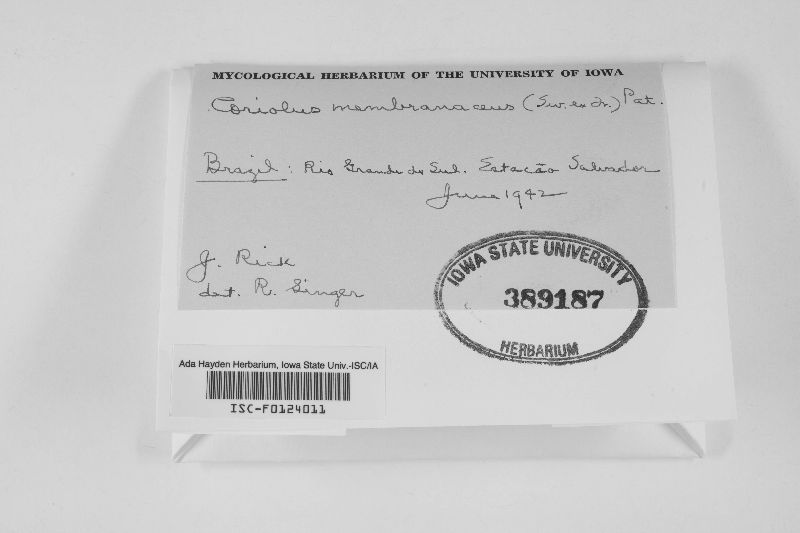 MYCOLOGICAL HERBARIUM OF THE UNIVERSITY OF IOWA
Coriolus membranaceus (Sw. ex Fr.) Pat.
Brazil: Rio Grande do Sul. Estacão Salvador
June 1942
J. Rick
det. R. Singer
IOWA STATE UNIVERSITY
389187
HERBARIUM
Ada Hayden Herbarium, Iowa State Univ.-ISC/IA
ISC-F0124011